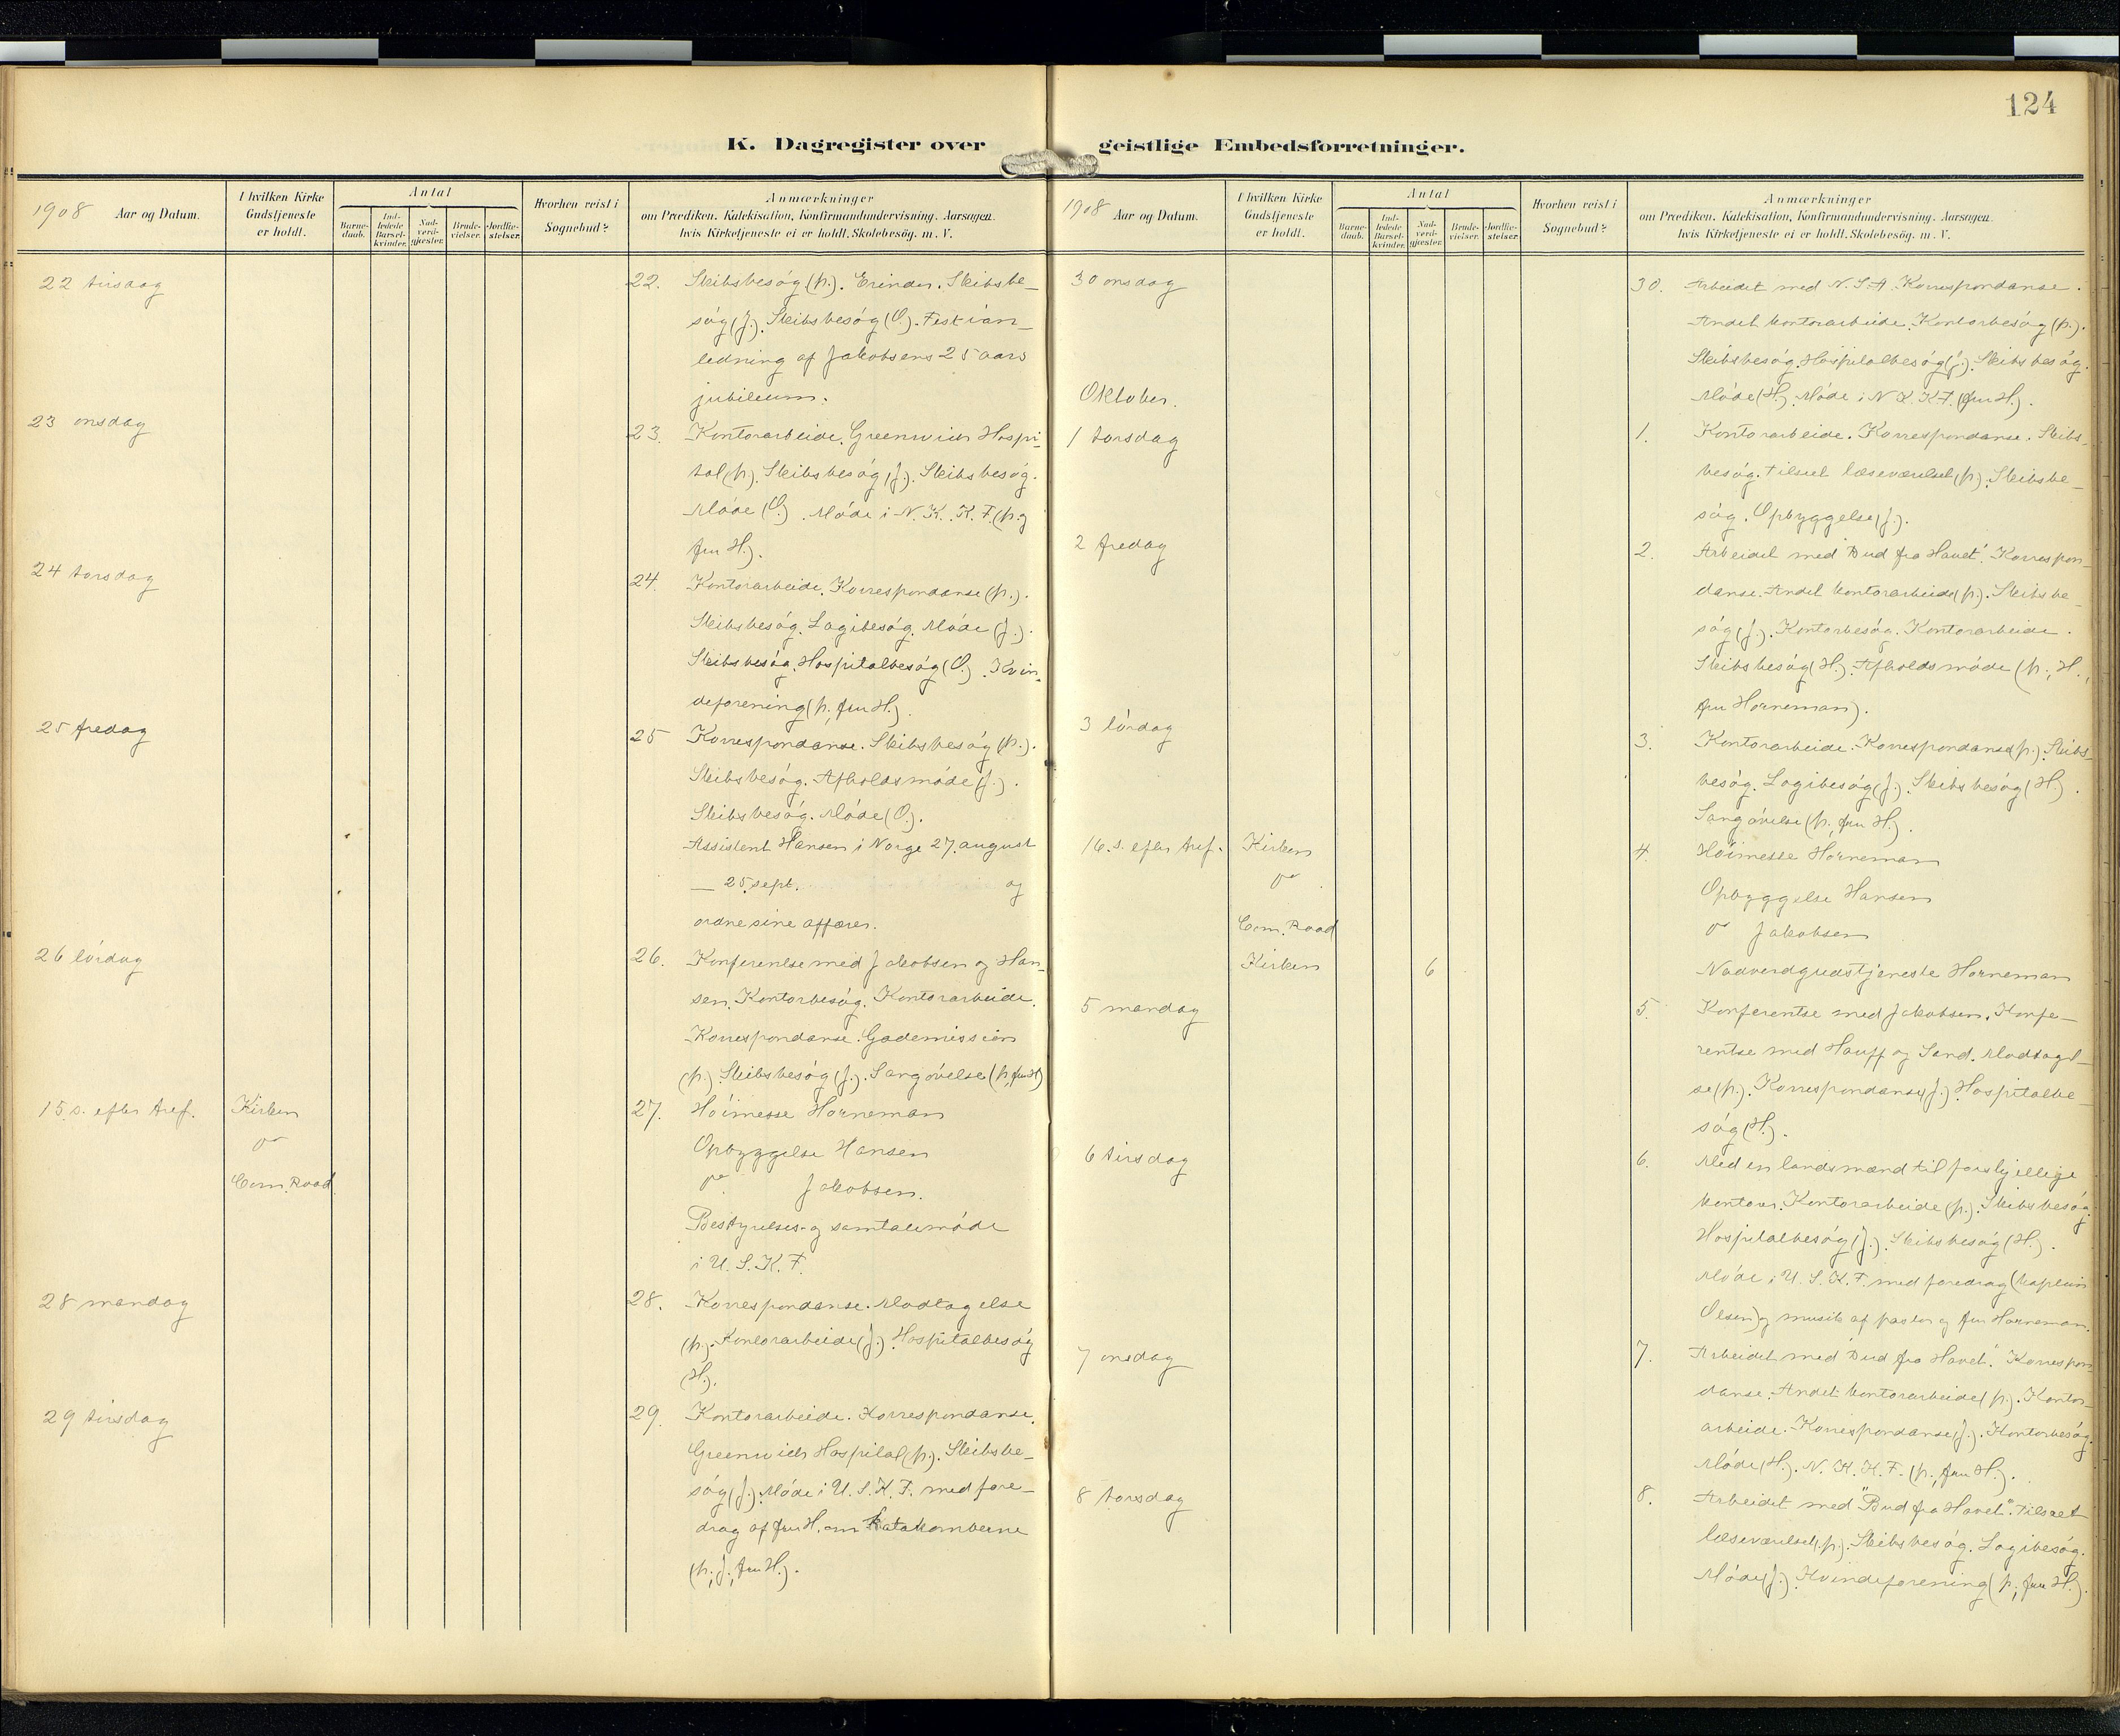 124
K. Dagregister over geistlige Embedsforretninger.
1908 Aar og Datum.
I hvilken Kirke Gudstjeneste er holdt.
Antal
Barne-daab.
Ind-ledede Barsel-kvinder.
Nad-verd-gjester.
Brude-vielser.
Jordfæ-stelser.
Hvorhen reist i Sognebud?
Anmærkninger
om Prædiken, Katekisation, Konfirmandundervisning, Aarsagen,
hvis Kirketjeneste ei er holdt, Skolebesög, m. V.
22 tirsdag
22. Skibsbesøg (p.). Erinder. Skibsbe-
søg (J.). Skibsbesøg (O.). Fest i an-
ledning af Jakobsens 25 aars
jubileum.
23 onsdag
23. Kontorarbeide. Greenwich Hospi-
tal (p.). Skibsbesøg (J.). Skibsbesøg.
Møde (O.). Møde i N. K. K. F. (p. og
fru H.).
24 torsdag
24. Kontorarbeide. Korrespondanse (p.).
Skibsbesøg. Logibesøg. Møde (J.).
Skibsbesøg. Hospitalbesøg (O.). Kvin-
deforening (p., fru H.).
25 fredag
25 Korrespondanse. Skibsbesøg (p.).
Skibsbesøg. Afholdsmøde (J.).
Skibsbesøg. Møde (O.).
Assistent Hansen i Norge 27. august
— 25. sept. og
ordne sine affærer.
26 lørdag
26. Konferentse med Jakobsen og Han-
sen. Kontorbesøg. Kontorarbeide.
Korrespondanse. Gademission
(p.). Skibsbesøg (J.). Sangøvelse (p., fru H.)
15 s. efter tref. Kirken
27. Høimesse Horneman
Opbyggelse Hansen
Com. Road
Jakobsen.
Bestyrelses- og samtalemøde
i U. S. K. F.
28 mandag
28. Korrespondanse. Modtagelse
(p.). Kontorarbeide (J.). Hospitalbesøg
(H.).
29 tirsdag
29. Kontorarbeide. Korrespondanse.
Greenwich Hospital (p.). Skibsbe-
søg (J.). Møde i U. S. K. F. med fore-
drag af fru H. om Katakomberne
(p., J., fru H.).
1908 Aar og Datum.
I hvilken Kirke Gudstjeneste er holdt.
Antal
Barne-daab.
Ind-ledede Barsel-kvinder.
Nad-verd-gjester.
Brude-vielser.
Jordfæ-stelser.
Hvorhen reist i Sognebud?
Anmærkninger
om Prædiken, Katekisation, Konfirmandundervisning, Aarsagen,
hvis Kirketjeneste ei er holdt, Skolebesög, m. V.
30 onsdag
30. Arbeidet med N. S. A. Korrespondanse.
Andet kontorarbeide. Kontorbesøg (p.).
Skibsbesøg. Hospitalbesøg (J.). Skibsbesøg.
Møde (H.). Møde i N. K. K. F. (fru H.).
Oktober.
1 torsdag
1. Kontorarbeide. Korrespondanse. Skibs-
besøg. Tilseet læseværelset (p.). Skibsbe-
søg. Opbyggelse (J.).
2 fredag
2. Arbeidet med "Bud fra Havet". Korrespon-
danse. Andet kontorarbeide (p.). Skibsbe-
søg (J.). Kontorbesøg. Kontorarbeide.
Skibsbesøg (H.). Afholdsmøde (p., H.,
fru Horneman).
3 lørdag
3. Kontorarbeide. Korrespondanse (p.). Skibs-
besøg. Logibesøg (J.). Skibsbesøg (H.).
Sangøvelse (p., fru H.).
16. s. efter tref. Kirken
4. Høimesse Horneman
Opbyggelse Hansen
Com. Road
Jakobsen
Kirken 6 Nadverdgudstjeneste Horneman
5 mandag
5. Konferentse med Jakobsen. Konfe-
rentse med Hauff og Sand. Modtagel-
se (p.). Korrespondanse (J.). Hospitalbe-
søg (H.).
6 tirsdag
6. Med en landsmænd til forskjellige
kontorer. Kontorarbeide (p.). Skibsbesøg.
Hospitalbesøg (J.). Skibsbesøg (H.).
Møde i U. S. K. F. med foredrag (kaptein
Olsen) og musik af pastor og fru Horneman.
7 onsdag
7. Arbeidet med "Bud fra Havet". Korrespon-
danse. Andet kontorarbeide (p.). Kontor-
arbeide. Korrespondanse (J.). Kontorbesøg.
Møde (H.). N. K. K. F. (p., fru H.).
8 torsdag
8. Arbeidet med "Bud fra Havet". Tilseet
læseværelset (p.). Skibsbesøg. Logibesøg.
Møde (J.). Kvindeforening (p., fru H.).